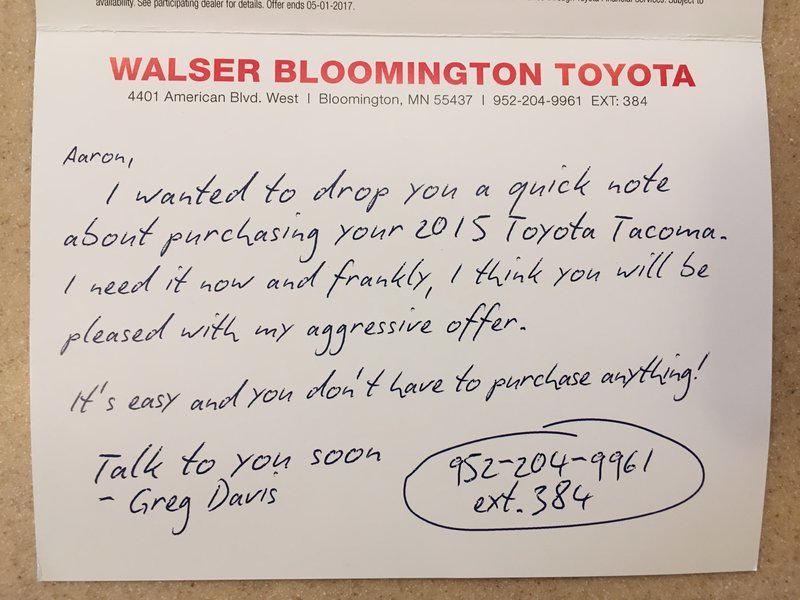 availability. See participating dealer for details. Offer ends 05-01-2017.
through Toyota Financial Services. Subject to
WALSER BLOOMINGTON TOYOTA
4401 American Blvd. West | Bloomington, MN 55437 | 952-204-9961 EXT: 384
Aaron,
I wanted to drop you a quick note
about purchasing your 2015 Toyota Tacoma.
I need it now and frankly, I think you will be
pleased with my aggressive offer.
It's easy and you don't have to purchase anything!
Talk to you soon
- Greg Davis
952-204-9961
ext. 384